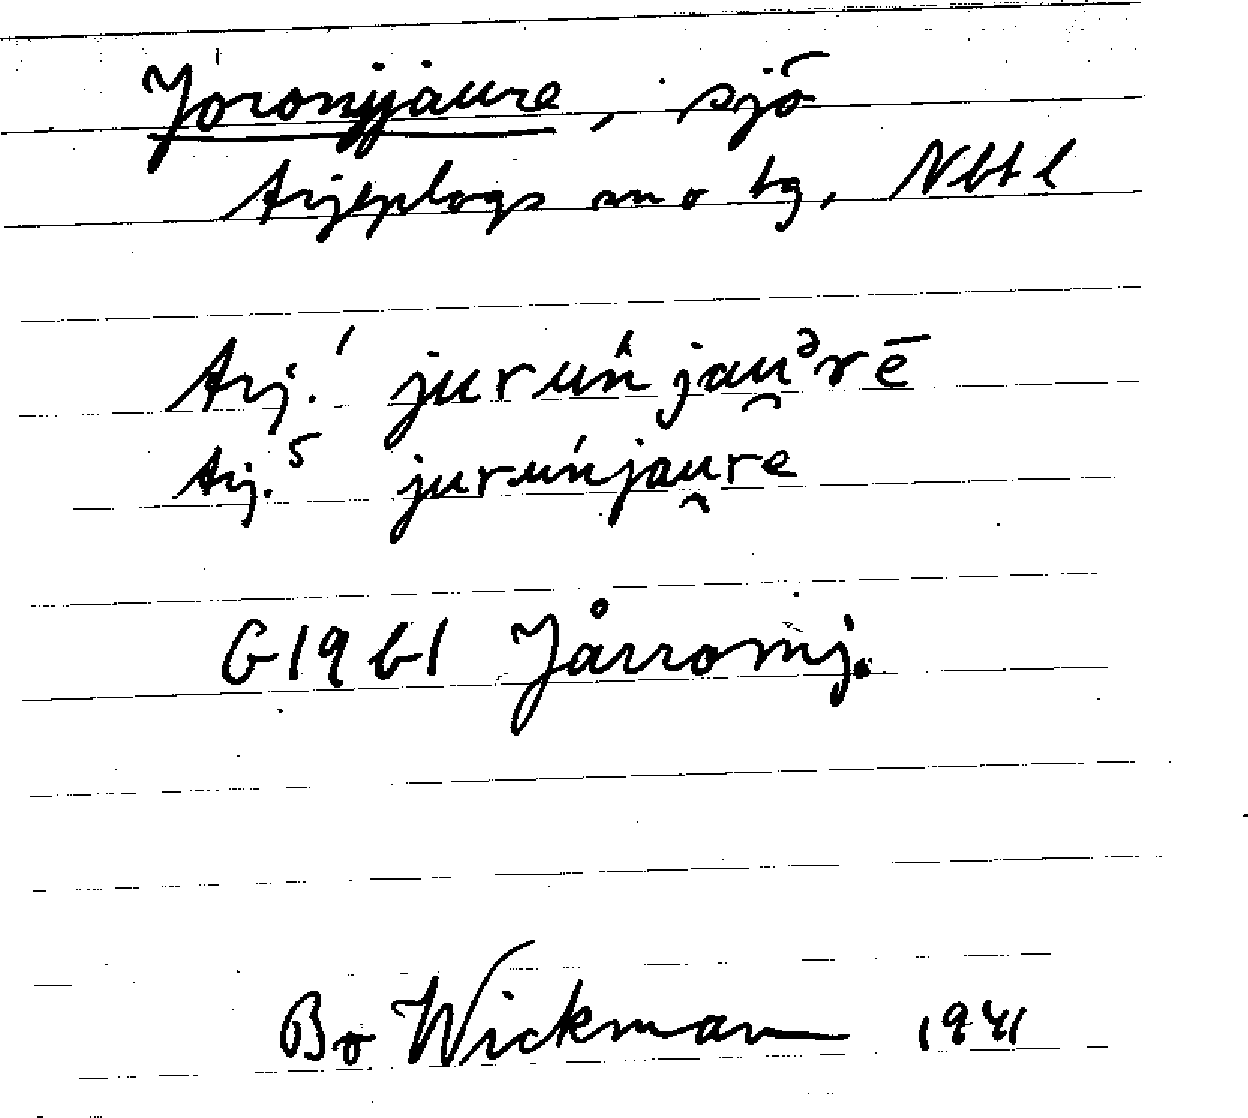 Joronjjaure, sjö
Arjeplogs sn o tg, Nbtl
Arj.¹ juruńjauᵊrē
Arj.⁵ juruńjaurē
G1961 Jårromj.
Bo Wickman 1941